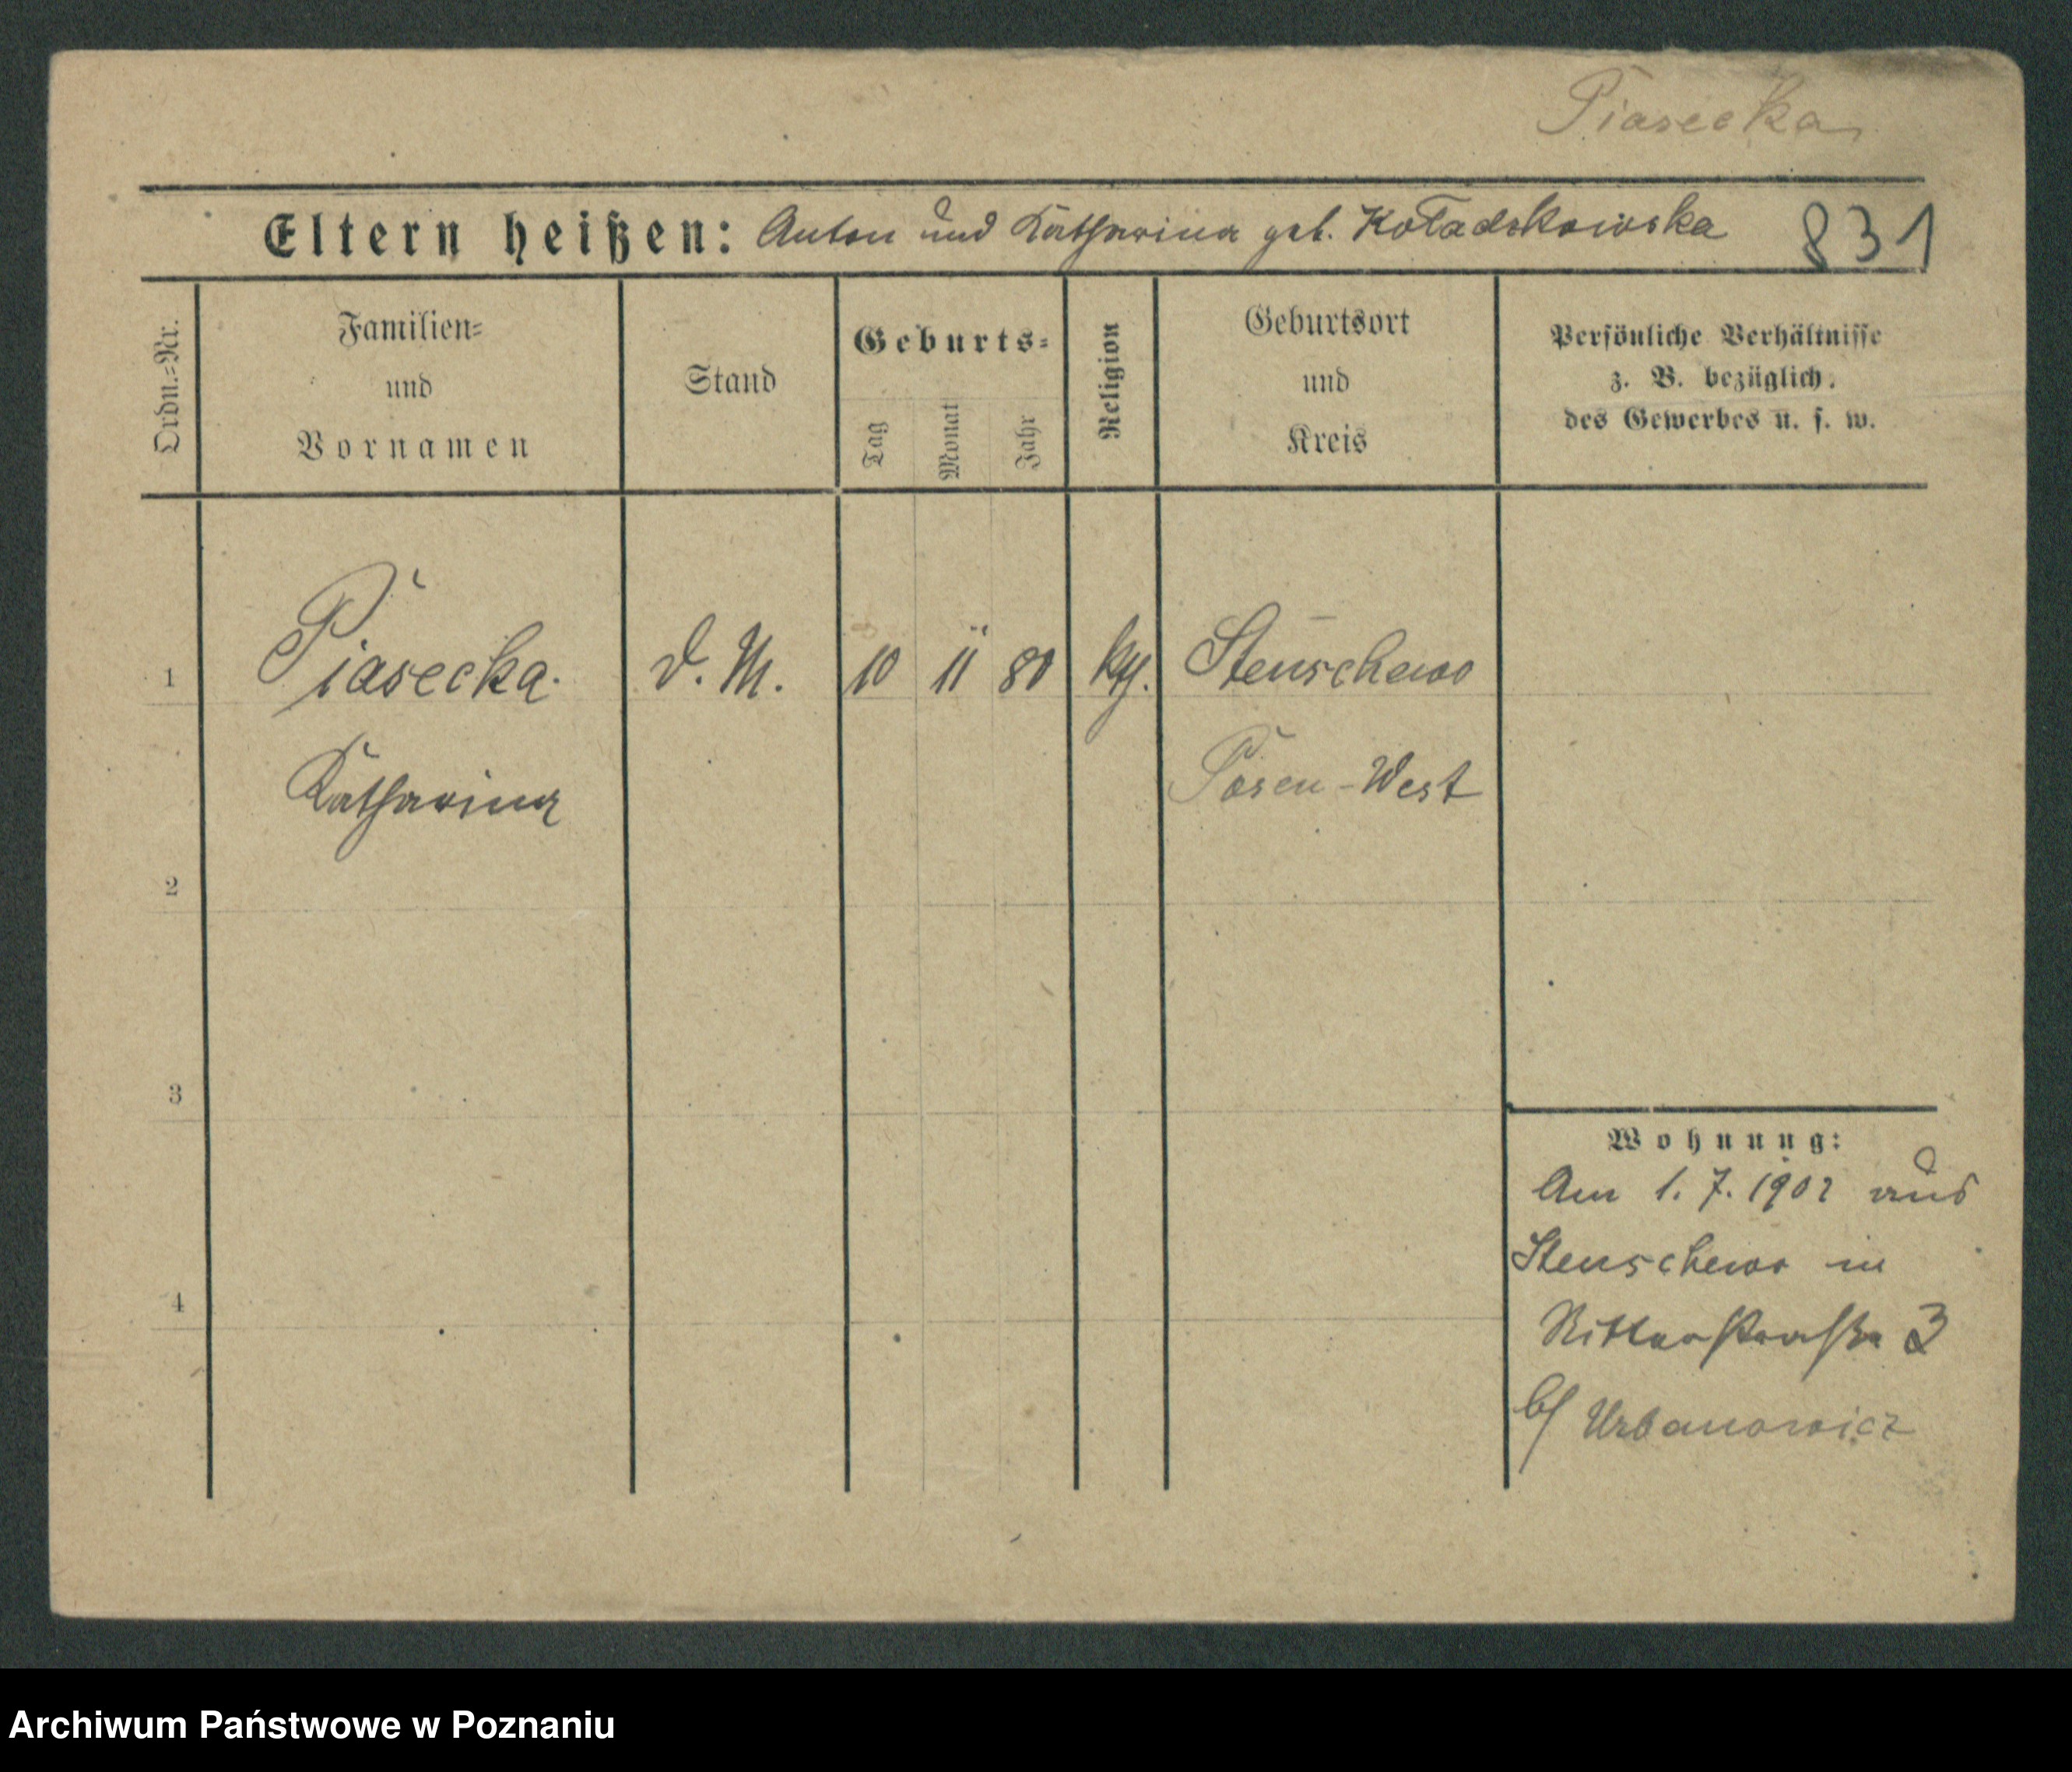 Piasecka
Eltern heißen: Anton und Katharina geb. Koładzkowska 831
Ordn.=Nr.
Familien=
und
Vornamen
Stand
Geburts=
Tag
Monat
Jahr
Religion
Geburtsort
und
Kreis
Persönliche Verhältnisse
z. B. bezüglich
des Gewerbes u. s. w.
1 Piasecka D. M. 10 11 80 kth. Stenschewo
Katharina Posen-West
2
3
4
Wohnung:
Am 1. 7. 1902 aus
Stenschewo in
Ritterstraße 3
b/ Urbanowicz
Archiwum Państwowe w Poznaniu